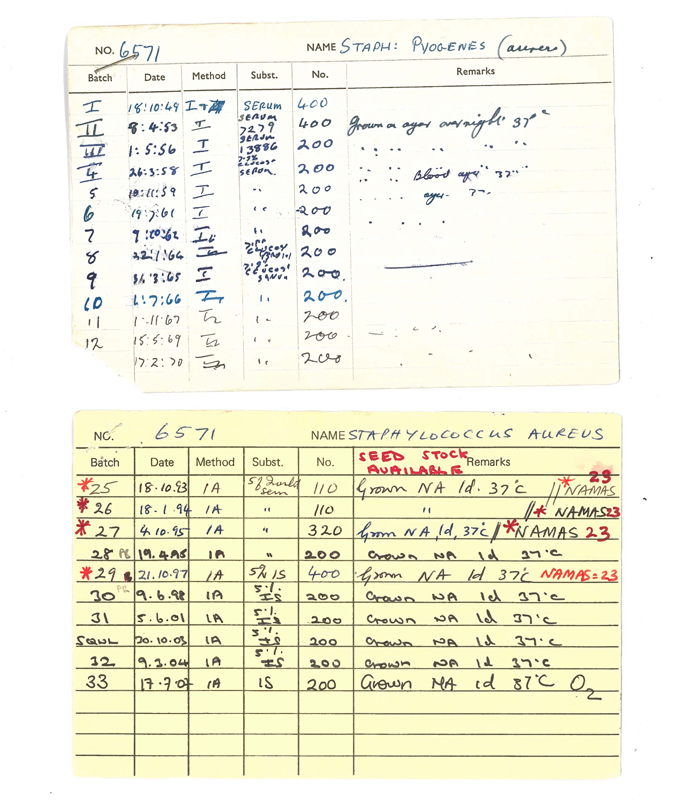 NO. 6571 NAME STAPH: PYOGENES (aureus)
Batch Date Method Subst. No. Remarks
I 18:10:49 I SERUM 400
II 8:4:53 I SERUM 7279 400 Grown on agar overnight 37°
III 1:5:56 I SERUM 13886 200 " " " " "
4 26:3:58 I SERUM 200 " " Blood agar 37°
5 10:11:59 I " 200 " " agar
6 19:7:61 I " 200 " " " "
7 9:10:62 200
8 22:1:64 200
9 I 200.
10 1:7:66 I " 200.
11 1:11:67 " 200
12 15:5:69 " 200
17:2:70 " 200
NO. 6571 NAME STAPHYLOCOCCUS AUREUS
Batch Date Method Subst. No. SEED STOCK AVAILABLE Remarks
*25 18.10.93 1A 5% 110 Grown NA 1d. 37°C // * NAMAS 23
*26 18.1.94 1A " 110 " // * NAMAS 23
*27 4.10.95 1A " 320 Grown NA, 1d, 37°C // * NAMAS 23
28 1A " 200 Grown NA 1d 37°C
*29 21.10.97 1A 5% IS 400 Grown NA 1d 37°C NAMAS=23
30 9.6.98 1A 5% IS 200 Grown NA 1d 37°C
31 5.6.01 1A 5% IS 200 Grown NA 1d 37°C
20.10.03 1A 5% IS 200 Grown NA 1d 37°C
32 9.3.04 1A 5% IS 200 Grown NA 1d 37°C
33 17.7.07 1A IS 200 Grown NA 1d 37°C O2